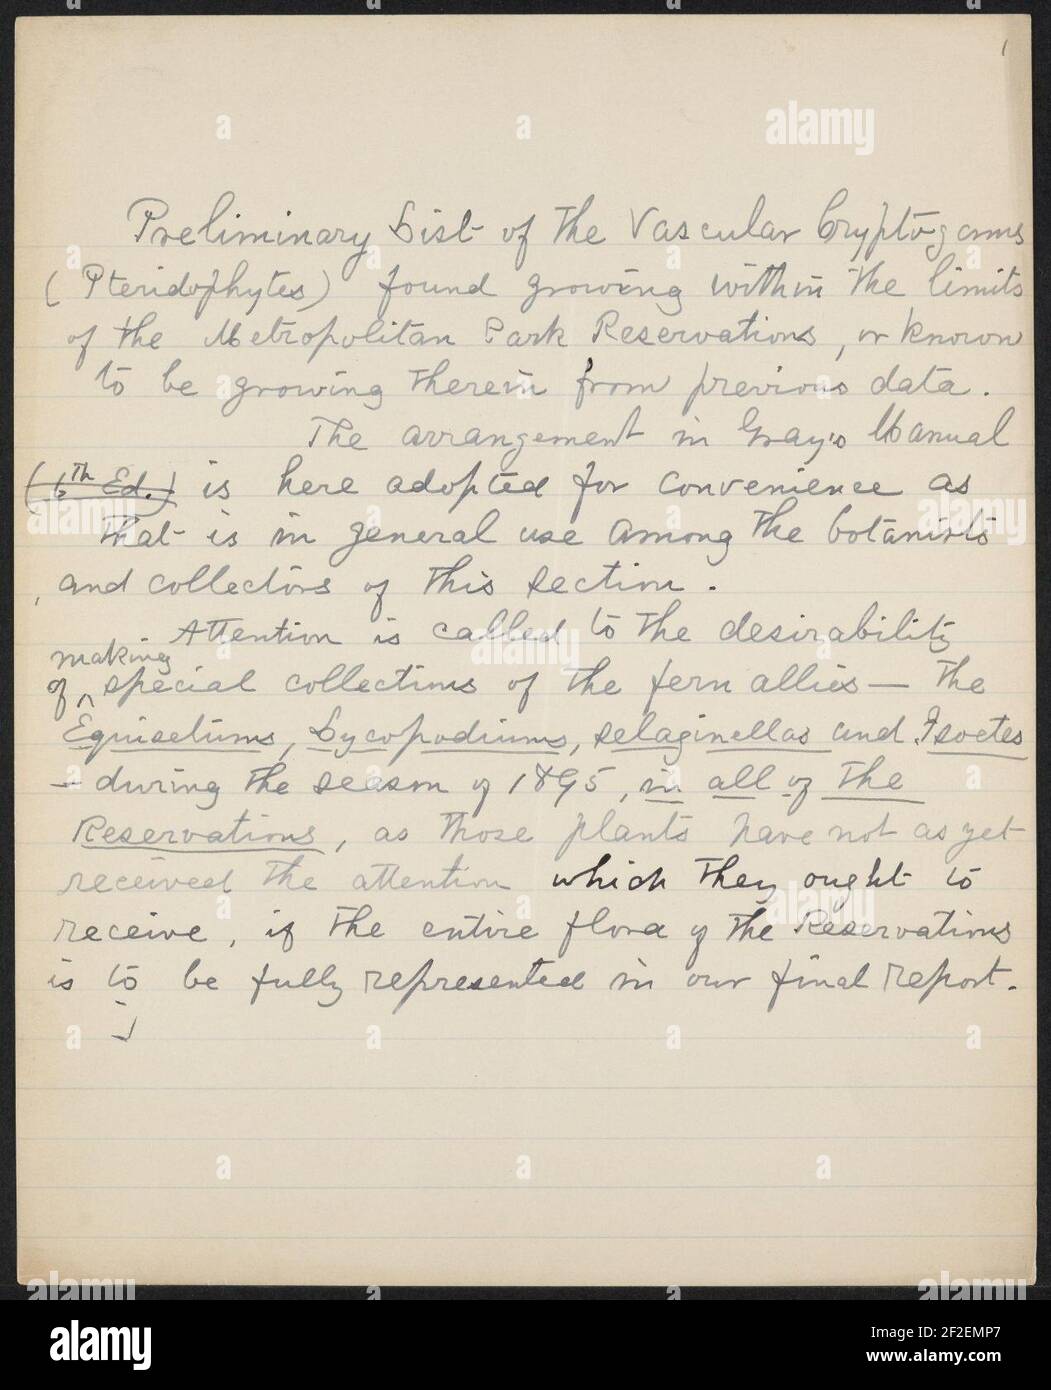 1
Preliminary List of the Vascular Cryptogams
(Pteridophytes) found growing within the limits
of the Metropolitan Park Reservations, or known
to be growing therein from previous data.
The arrangement in Gray's Manual
(6th Ed.) is here adopted for convenience as
that is in general use among the botanists
and collectors of this section.
Attention is called to the desirability
making
of ^ special collections of the fern allies — the
Equisetums, Lycopodiums, selaginellas and Isoetes
— during the season of 1895, in all of the
Reservations, as those plants have not as yet
received the attention which they ought to
receive, if the entire flora of the Reservations
is to be fully represented in our final report.
alamy
Image ID: 2F2EMP7
www.alamy.com